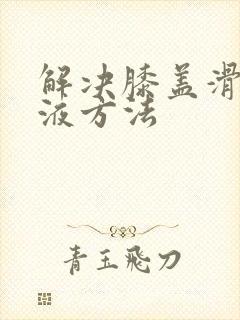 解决膝盖滑
液方法
青玉飛刀